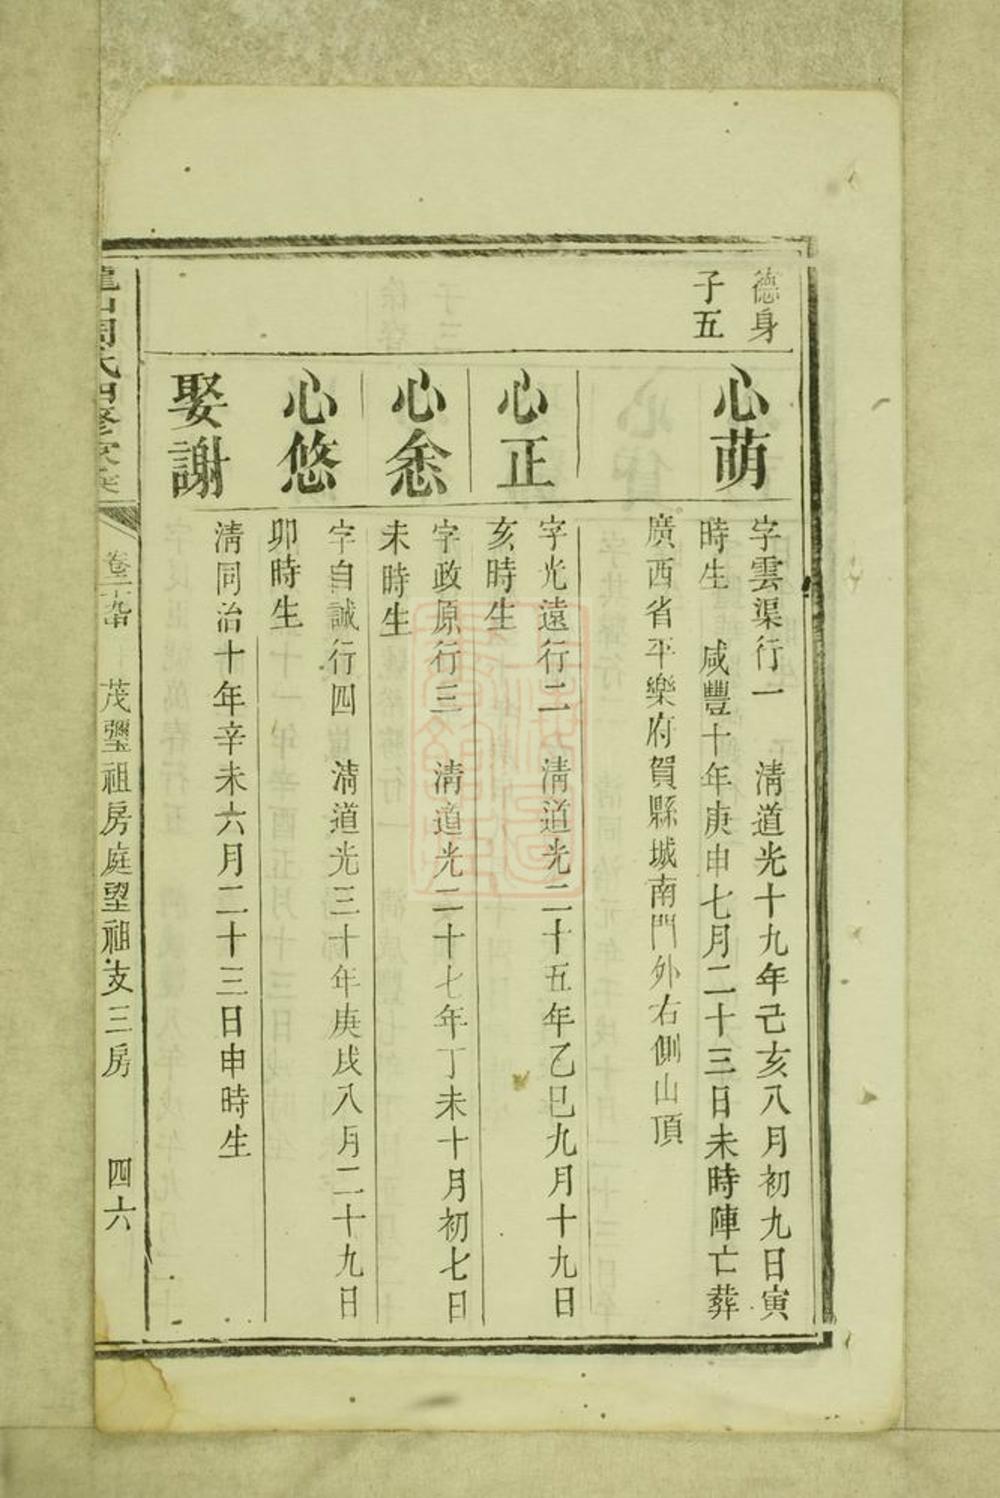 德身
子五
心萌
字雲渠行一　清道光十九年己亥八月初九日寅
時生　咸豐十年庚申七月二十三日未時陣亡葬
廣西省平樂府賀縣城南門外右側山頂
心正
字光遠行二　清道光二十五年乙巳九月十九日
亥時生
心恙
字政原行三　清道光二十七年丁未十月初七日
未時生
心悠
字自誠行四　清道光三十年庚戌八月二十九日
卯時生
娶謝
清同治十年辛未六月二十三日申時生
周氏四修
茂璽祖房庭望祖支三房
四六